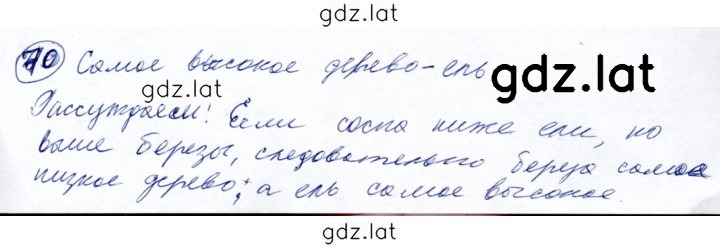 gdz.lat
70 Самое высокое дерево - ель
gdz.lat
gdz.lat
Рассуждаем! Если сосна ниже ели, но
выше березы, следовательно береза самое
низкое дерево, а ель самое высокое.
gdz.lat